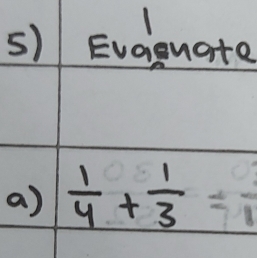 5) Evaluate
a) 1/4 + 1/3 =